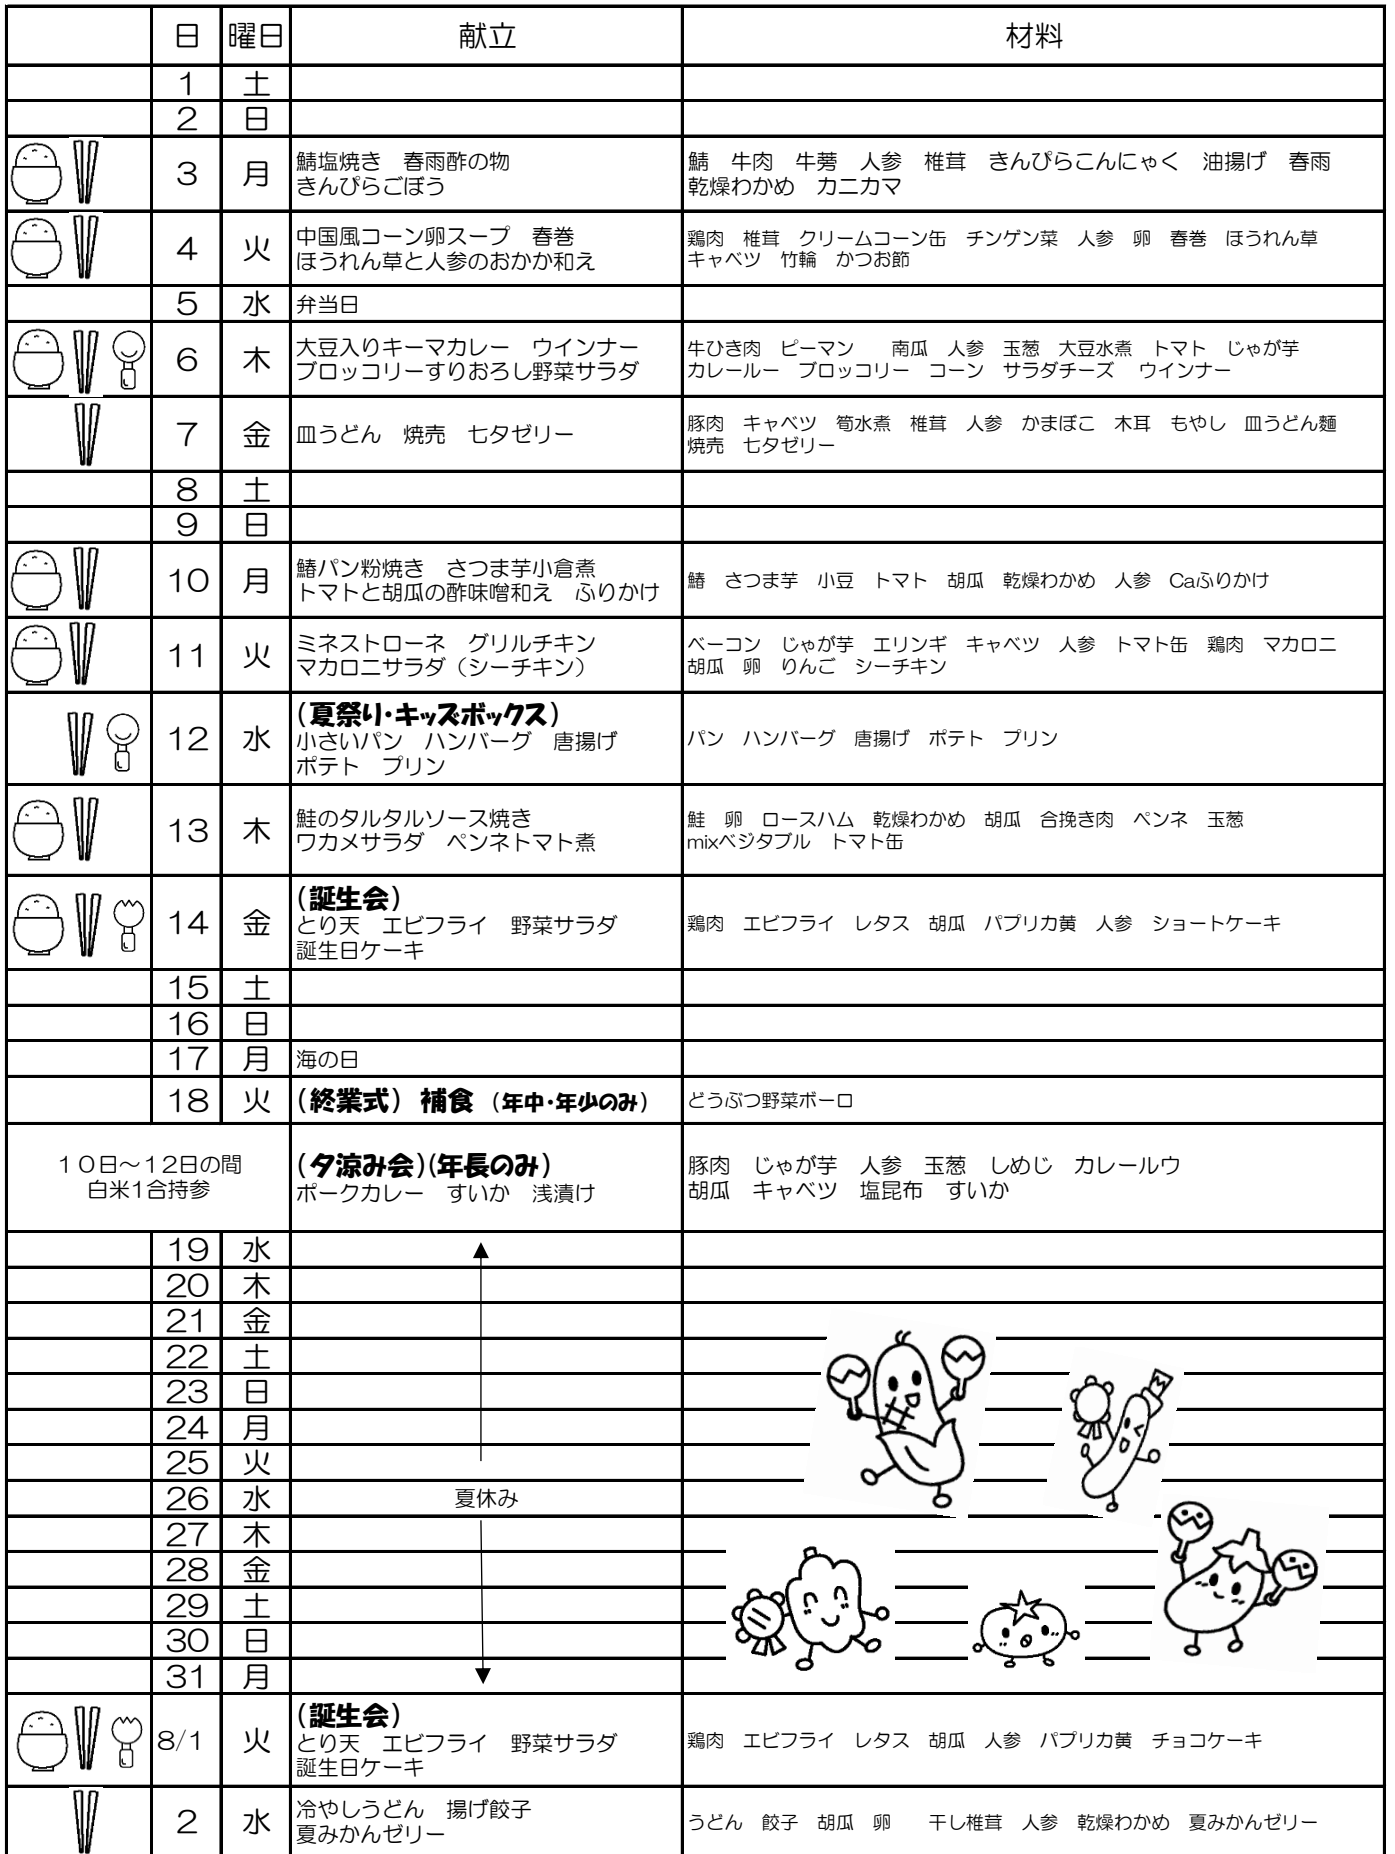 日 曜日 献立 材料
1 土
2 日
3 月 鯖塩焼き　春雨酢の物
きんぴらごぼう
鯖　牛肉　牛蒡　人参　椎茸　きんぴらこんにゃく　油揚げ　春雨
乾燥わかめ　カニカマ
4 火 中国風コーン卵スープ　春巻
ほうれん草と人参のおかか和え
鶏肉　椎茸　クリームコーン缶　チンゲン菜　人参　卵　春巻　ほうれん草
キャベツ　竹輪　かつお節
5 水 弁当日
6 木 大豆入りキーマカレー　ウインナー
ブロッコリーすりおろし野菜サラダ
牛ひき肉　ピーマン　　南瓜　人参　玉葱　大豆水煮　トマト　じゃが芋
カレールー　ブロッコリー　コーン　サラダチーズ　ウインナー
7 金 皿うどん　焼売　七夕ゼリー
豚肉　キャベツ　筍水煮　椎茸　人参　かまぼこ　木耳　もやし　皿うどん麺
焼売　七夕ゼリー
8 土
9 日
10 月 鰆パン粉焼き　さつま芋小倉煮
トマトと胡瓜の酢味噌和え　ふりかけ
鰆　さつま芋　小豆　トマト　胡瓜　乾燥わかめ　人参　Caふりかけ
11 火 ミネストローネ　グリルチキン
マカロニサラダ（シーチキン）
ベーコン　じゃが芋　エリンギ　キャベツ　人参　トマト缶　鶏肉　マカロニ
胡瓜　卵　りんご　シーチキン
12 水 （夏祭り・キッズボックス）
小さいパン　ハンバーグ　唐揚げ
ポテト　プリン
パン　ハンバーグ　唐揚げ　ポテト　プリン
13 木 鮭のタルタルソース焼き
ワカメサラダ　ペンネトマト煮
鮭　卵　ロースハム　乾燥わかめ　胡瓜　合挽き肉　ペンネ　玉葱
mixベジタブル　トマト缶
14 金 （誕生会）
とり天　エビフライ　野菜サラダ
誕生日ケーキ
鶏肉　エビフライ　レタス　胡瓜　パプリカ黄　人参　ショートケーキ
15 土
16 日
17 月 海の日
18 火 （終業式）補食（年中・年少のみ） どうぶつ野菜ボーロ
１０日～１２日の間
白米1合持参
（夕涼み会）（年長のみ）
ポークカレー　すいか　浅漬け
豚肉　じゃが芋　人参　玉葱　しめじ　カレールウ
胡瓜　キャベツ　塩昆布　すいか
19 水
20 木
21 金
22 土
23 日
24 月
25 火
26 水 夏休み
27 木
28 金
29 土
30 日
31 月
8/1 火 （誕生会）
とり天　エビフライ　野菜サラダ
誕生日ケーキ
鶏肉　エビフライ　レタス　胡瓜　人参　パプリカ黄　チョコケーキ
2 水 冷やしうどん　揚げ餃子
夏みかんゼリー
うどん　餃子　胡瓜　卵　　干し椎茸　人参　乾燥わかめ　夏みかんゼリー